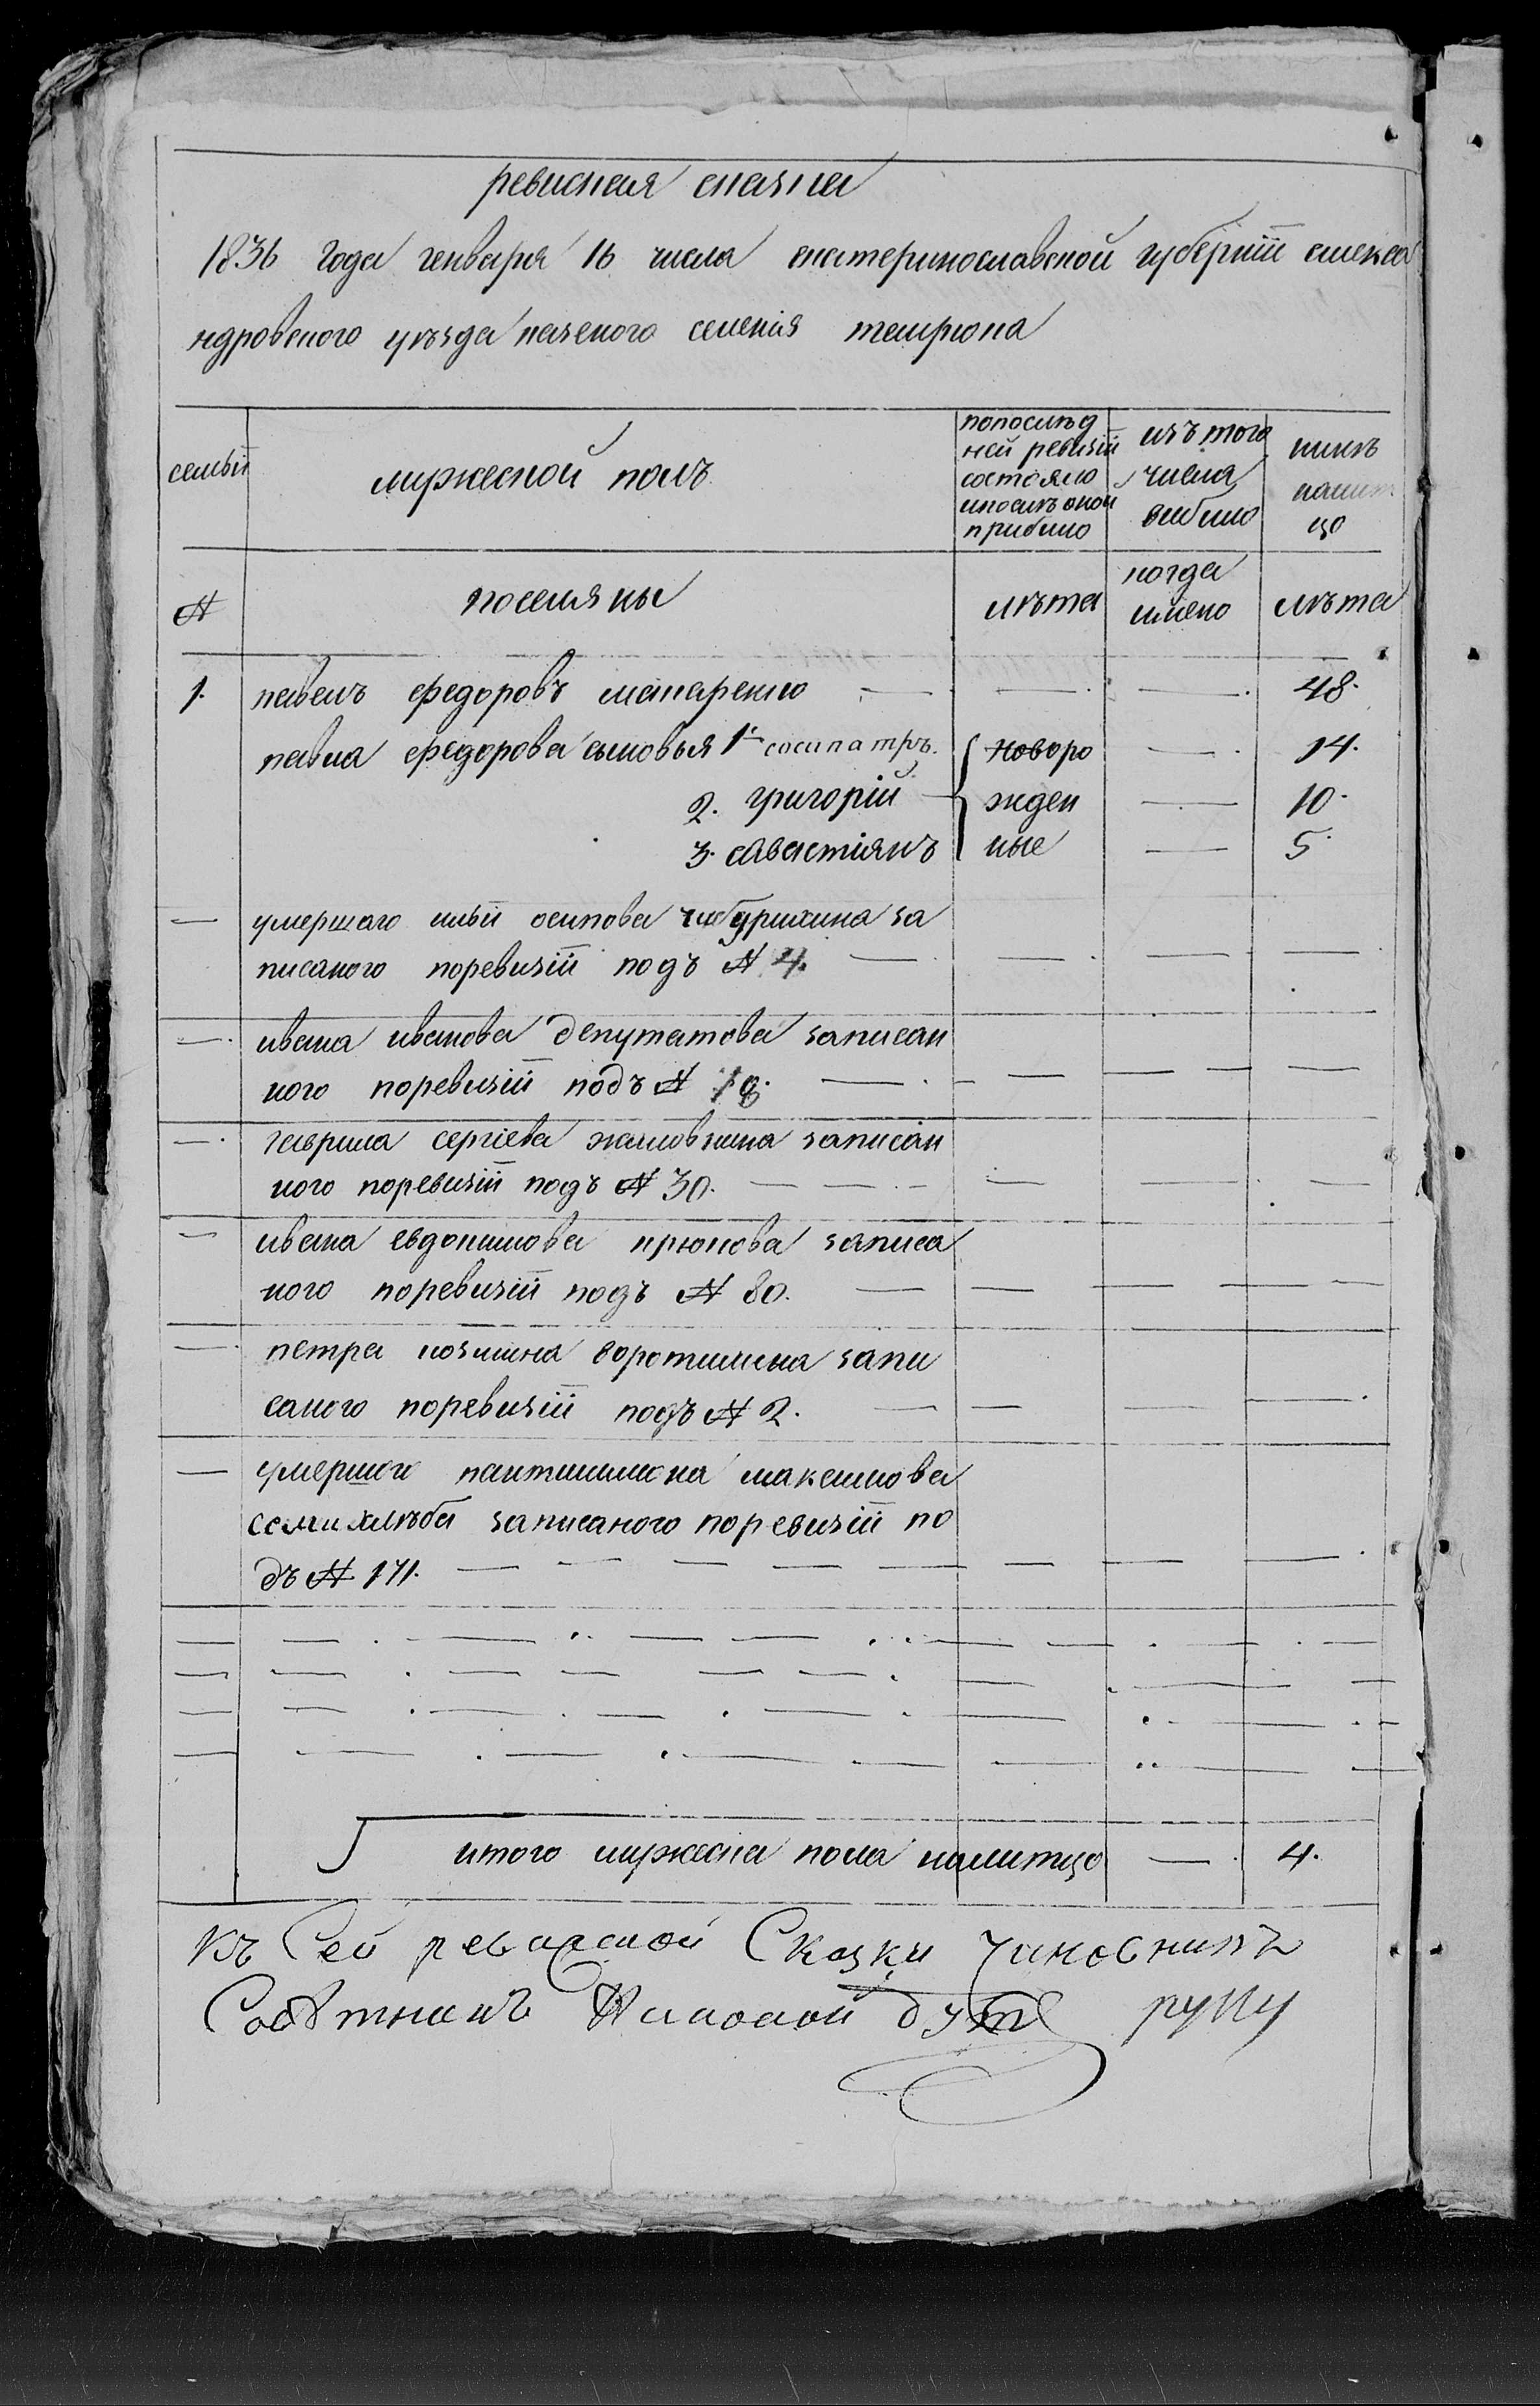 ревиская сказка
1836 года генваря 16 числа екатеринославской губернїи алекса
ндровского уѣзда казеного селенїя темрюка
семьи
мужеской полъ
попослѣд
ней ревизїи
состояло
ипослѣ оной
прибило
изъ того
числа
выбило
нинѣ
налит
цо
№
поселяны
лѣта
когда
имено
лѣта
1. павелъ федоровъ макаренко — — — 48.
павла федорова сыновья 1й сосипатръ. новоро — 14.
2. григорїй — жден — 10.
3. савастїянъ ные — 5.
— умершаго ильи осипова за
писаного поревизїи подъ № 4. — — — —
— ивана иванова депутатова записан
ного поревизїи подъ № — — — —
— гаврила сергїева жиловкина записан
ного поревизїи подъ № 30. — — — — —
— ивана евдокимова крюкова записа
ного поревизїи подъ № 80. — — — —
— петра козмина воротилина запи
саного поревизїи подъ № 2. — — — —
— умершого пантилимона максимова
семихлѣба записаного поревизїи по
дъ № 171. — — — — — — — —
итого мужеска пола налитцо — 4.
Къ Сей ревиской Сказки чиновникъ
руку